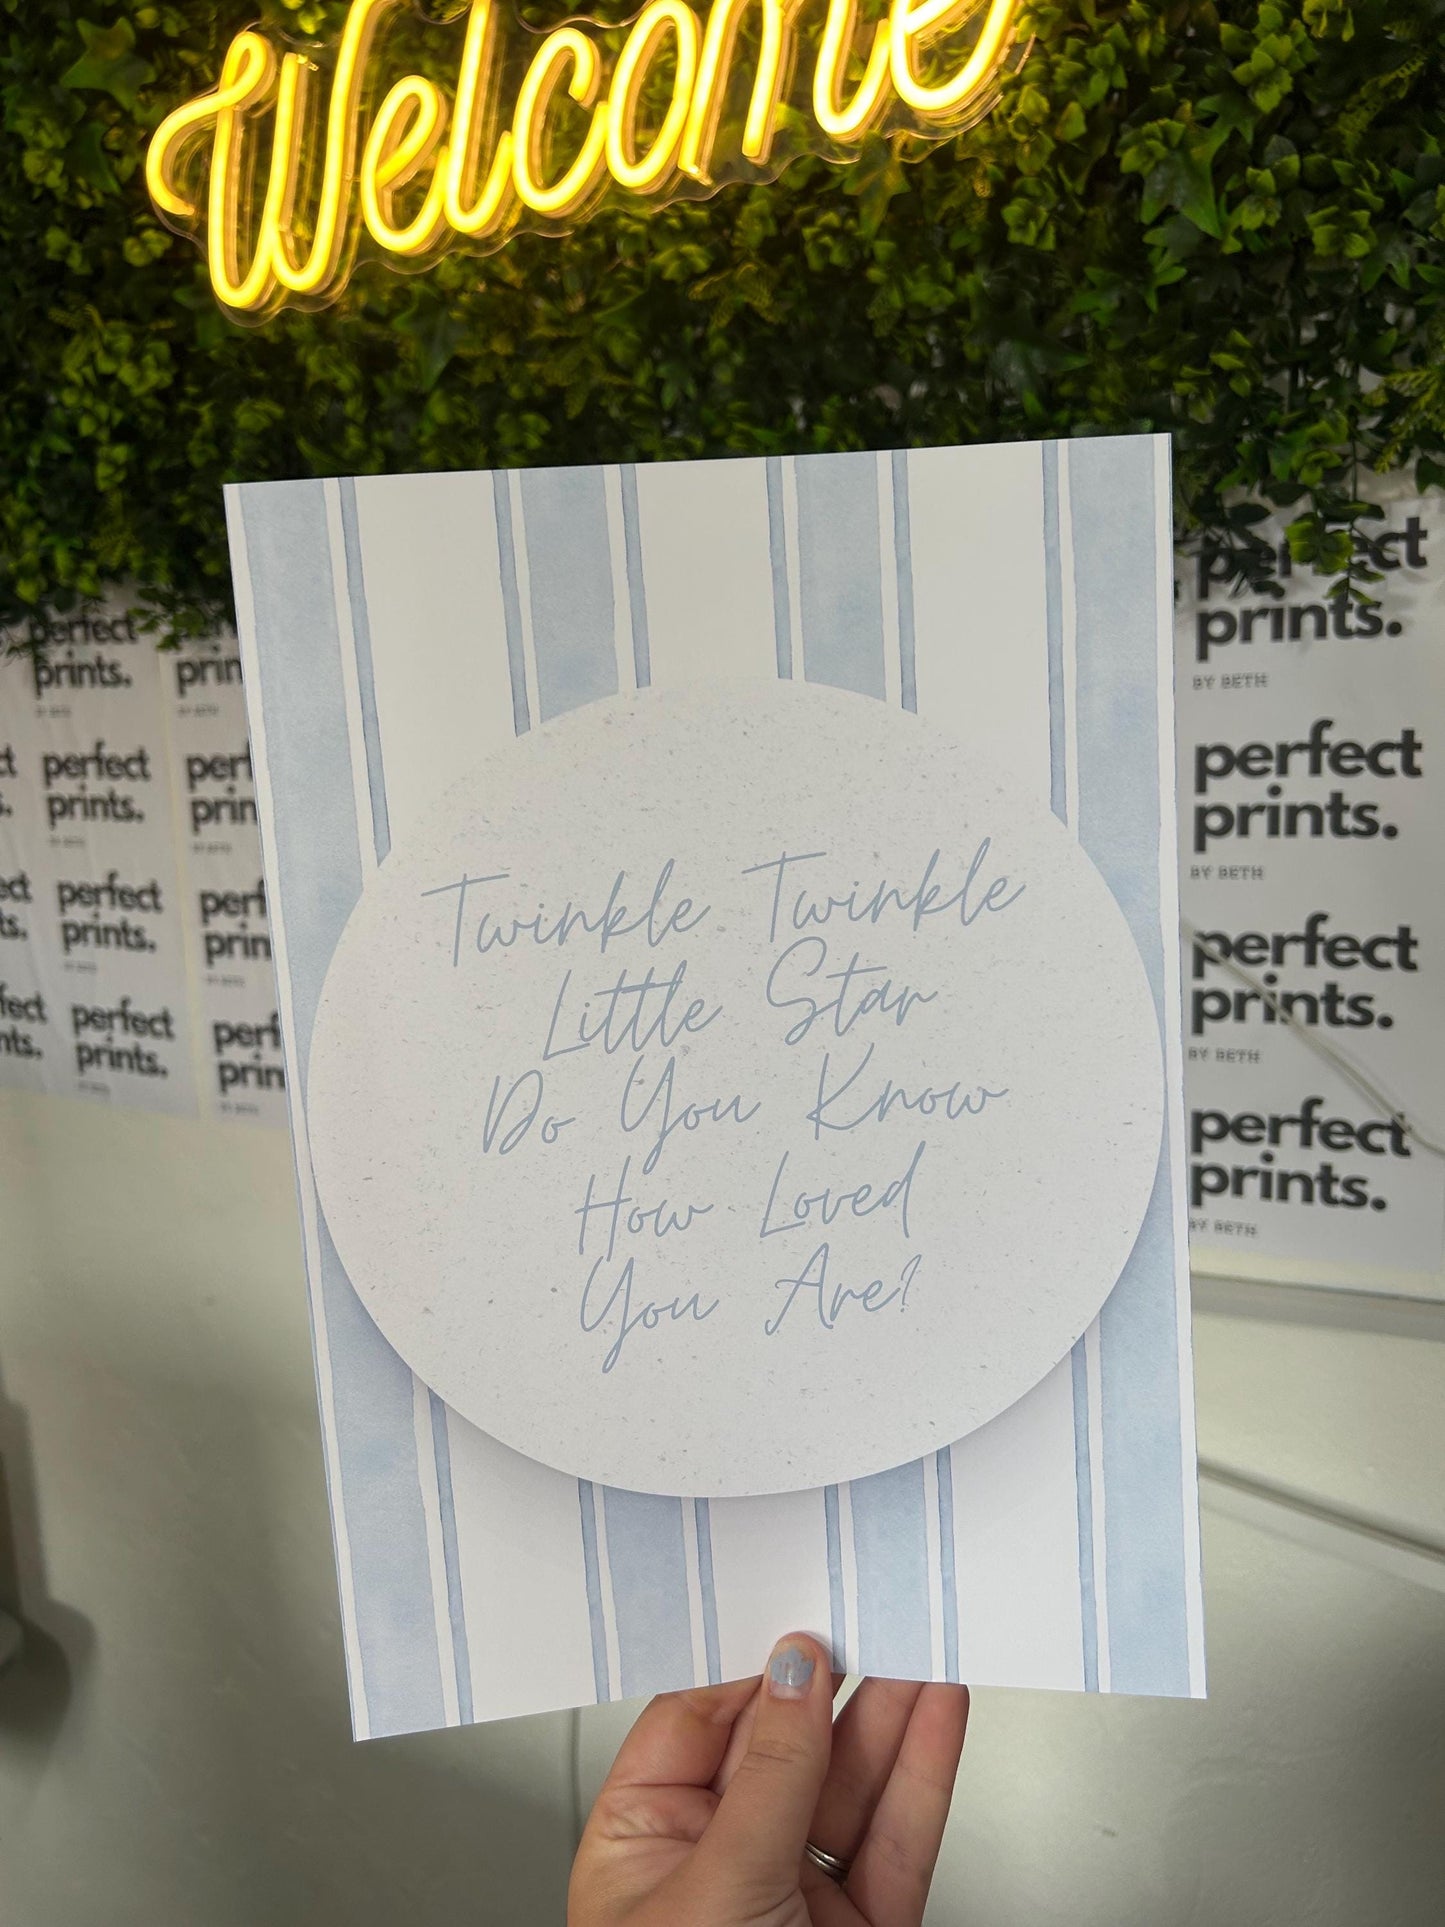 Welcome
Twinkle Twinkle
Little Star
Do You Know
How Loved
You Are?
perfect
prints.
BY BETH
perfect
prints.
BY BETH
perfect
prints.
BY BETH
perfect
prints.
BY BETH
perfect
prints.
BY BETH
perfect
prints.
perfect
prints.
perfect
prints.